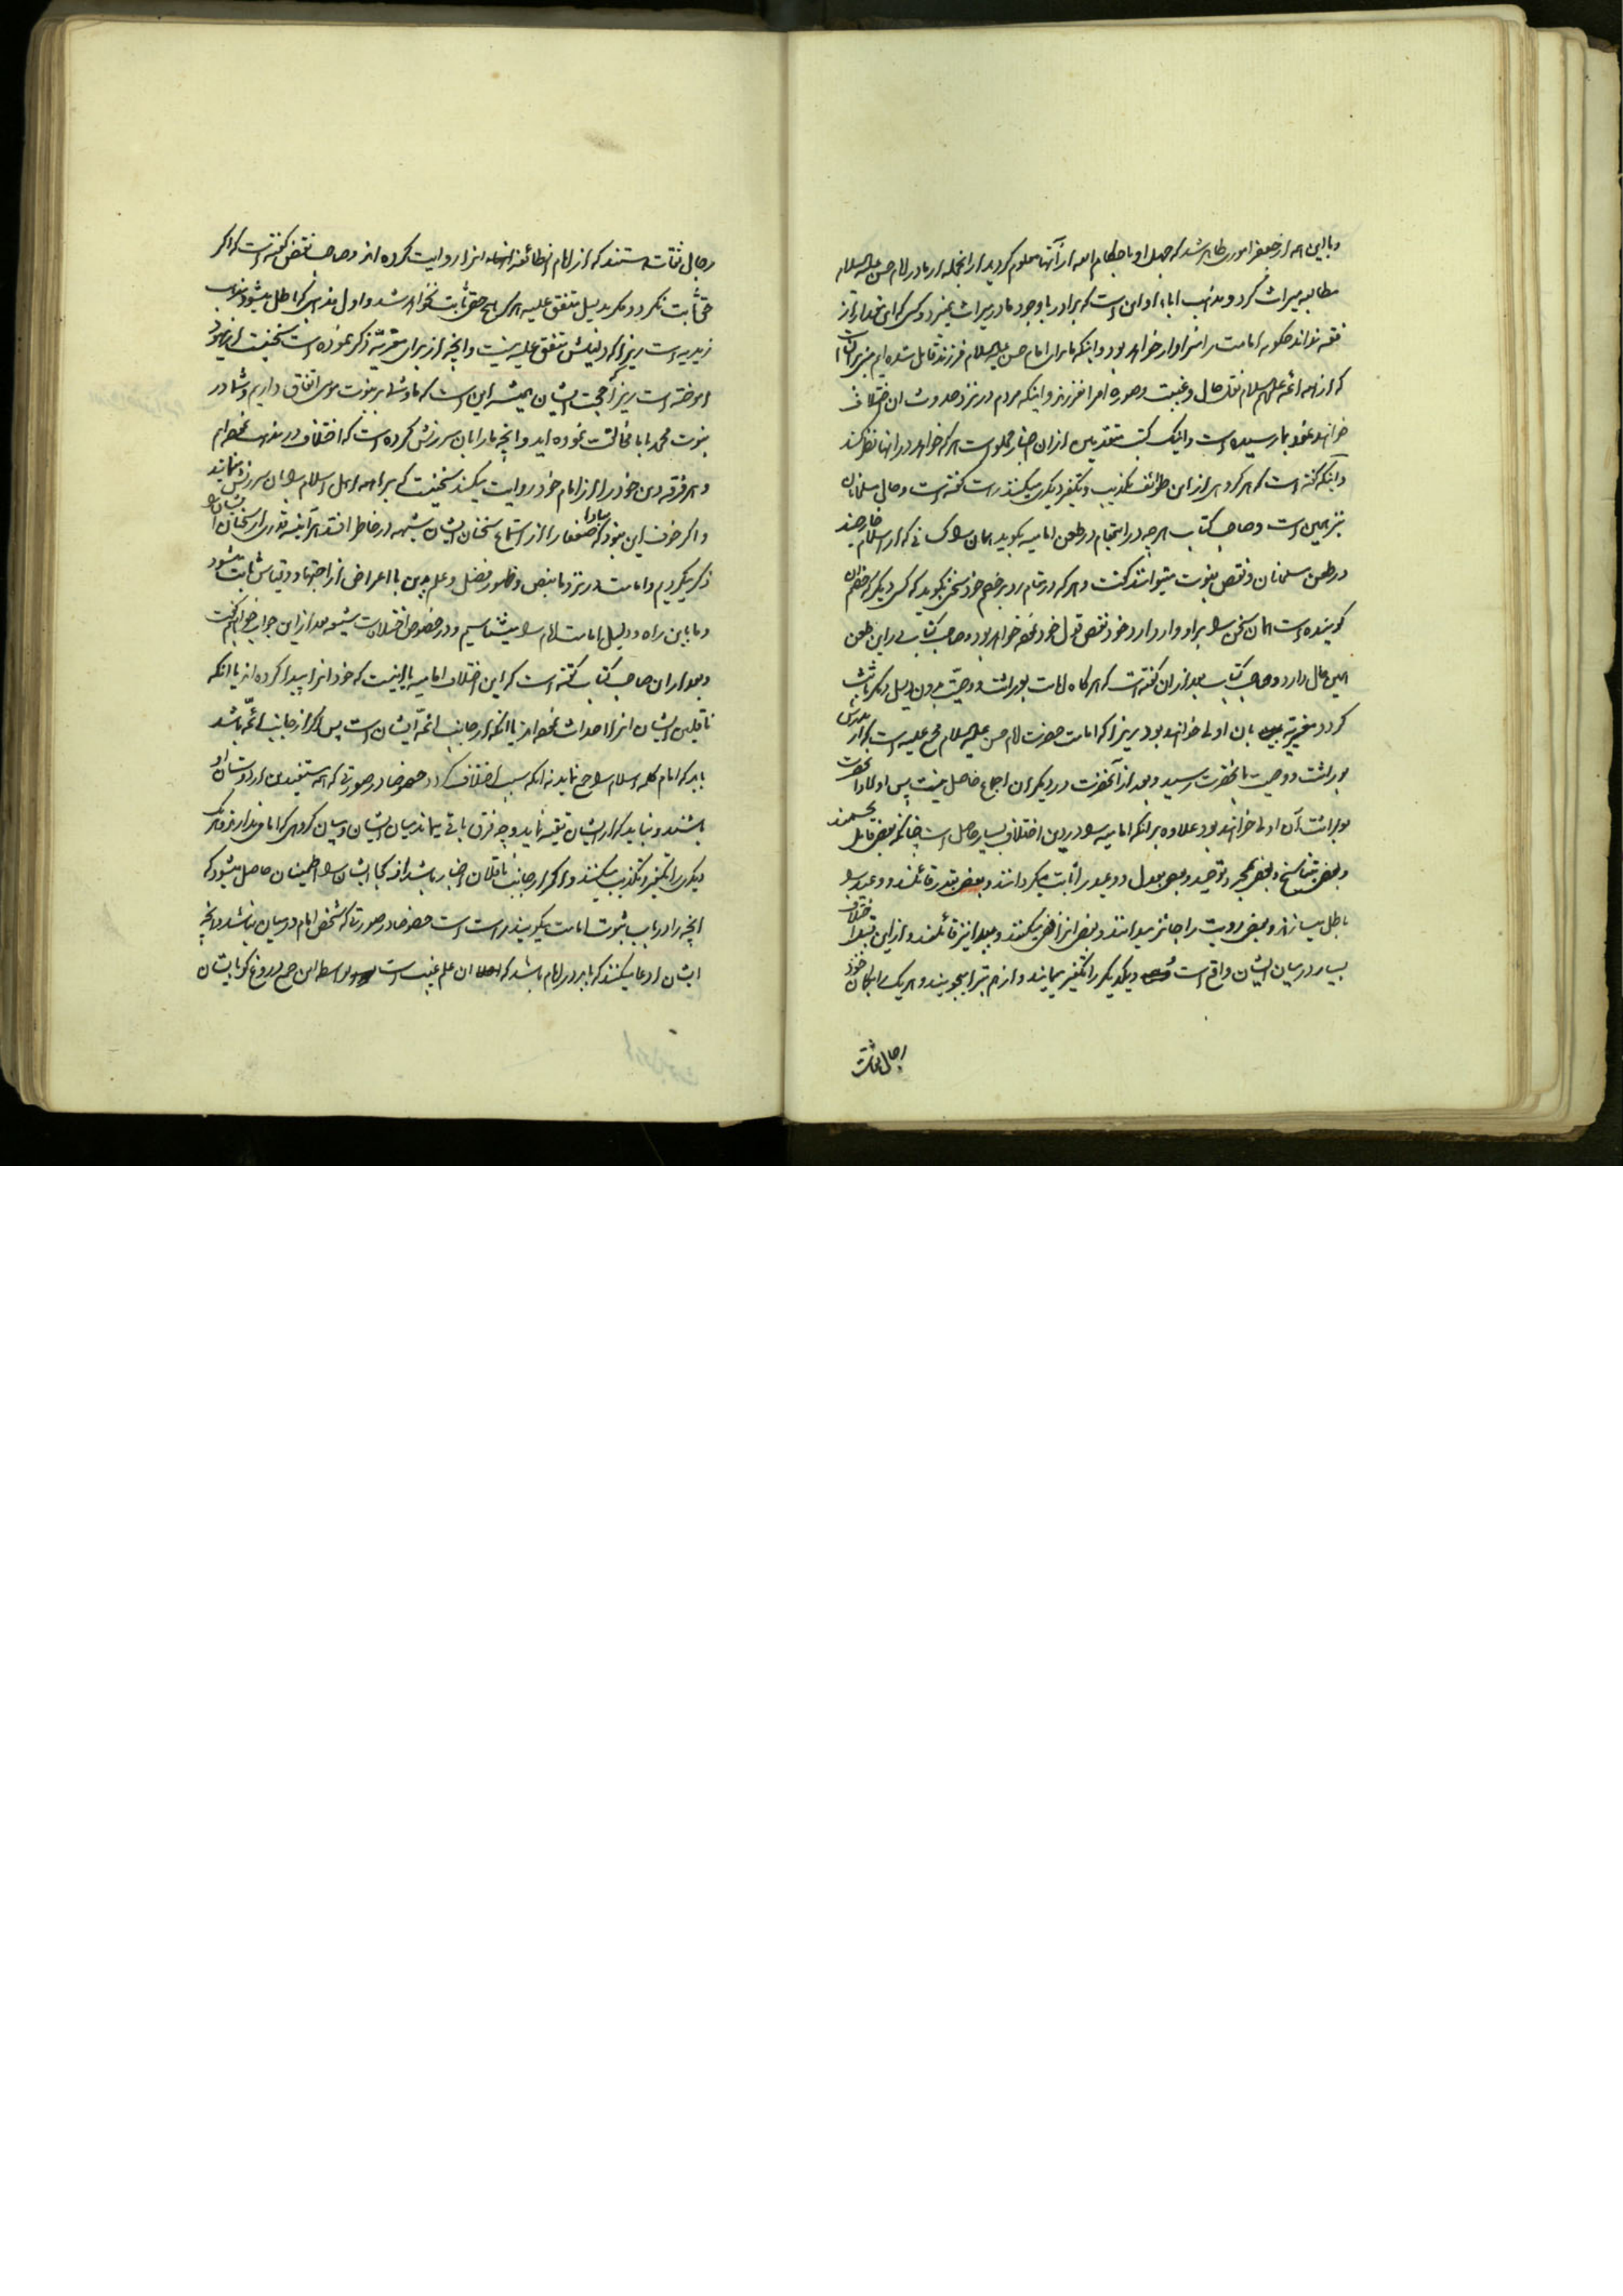 و با این همه از جعفر اموری ظاهر شد که جهل او باحکام الله از آنها معلوم کردید از انجمله از مادر امام حسن علیه السلام
مطالبه میراث کرد و مذهب اباء او این است که برادر با وجود مادر میراث نمیبرد و کسی که این مقدار از
فقه نداند چکونه امامت را سزاوار خواهد بود و اینکه ما برای امام حسن علیه السلام فرزند قایل شده ایم
که از همه ائمه علیهم السلام نقل حال و غیبت و صوره امر انفرزند و اینکه مردم در نزد حدوث ان اختلاف
خواهند نمود بما رسیده است و اینک کتب متقدمین از ان اخبار مملو است هر که خواهد در انها نظر کند
و اینکه گفته است که هر کروهی از این طوائف تکذیب و تکفیر دیکری میکنند راست گفته است و حال مسلمانان
نیز همین است و صاحب کتاب هرچه در اینمقام در طعن امامیه بکوید همان را کسانی که از اسلام خارجند
در طعن مسلمانان و نقص نبوت میتوانند گفت و هر که در مقام رد بر خصم خود سخنی بکوید که کسی دیکر
کوینده است همان سخن را بر او وارد ارد خود نقض قول خود نموده خواهد بود و صاحب کتاب در این طعن
همین حال دارد و صاحب کتاب بعد از ان گفته است که هر گاه امامت بوراثت و وصیت بدون دلیل دیکر ثابت
کردد مغیریه بان اولی خواهند بود زیرا که امامت حضرت امام حسن علیه السلام مجمع علیه است که از پدرش
بوراثت و وصیت بانحضرت رسید و بعد از آنحضرت در دیکران اجماع حاصل نیست پس اولاد انحضرت
بوراثت آن اولی خواهند بود علاوه بر انکه امامیه را در دین اختلاف بسیار حاصل است چنانکه بعضی قایل بجسمند
و بعضی بتناسخ و بعضی بجبر و توحید و بعضی بعدل و وعید را ثابت میکردانند و بعضی بقدر قائلند و وعید را
باطل میسازند و بعضی رویت را جائز میدانند و بعضی انرا نفی میکنند و ببدا نیز قائلند و از این قبیل اختلاف
بسیار در میان ایشان واقع است و یکدیکر را تکفیر مینمایند و از هم تبرا میجویند و هر یک را بکمان خود
رجال ثقات
رجال ثقات هستند که از امام انطائفه انرا روایت کرده اند و صاحب نقض گفته است که اگر
حق ثابت نکردد مکر بدلیل متفق علیه هرگز هیچ حق ثابت نخواهد شد و اول مذهبی که باطل میشود مذهب
زیدیه است زیرا که دلیلش متفق علیه نیست و انچه از برای مغیریه ذکر نموده است سخنیست که از یهود
اموخته است زیرا حجت ایشان همیشه این است که ما و شما بر نبوت موسی اتفاق داریم و شما در
نبوت محمد با ما مخالفت نموده اید و انچه ما را بان سرزنش کرده است که اختلاف در مذهب نموده ایم
و هر فرقه دین خود را از امام خود روایت میکنند سخنیست که براهمه اهل اسلام را بان سرزنش مینمایند
و اگر خوف این نبود که مبادا ضعفا را از استماع سخنان ایشان شبهه در خاطر افتد هر آینه قدری از سخنان ایشان را
ذکر میکردیم و امامت در نزد ما بنص و ظهور فضل و علم بدین با اعراض از اجتهاد و قیاس ثابت میشود
و ما باین راه و دلیل امامت امام را میشناسیم و در خصوص اختلاف شیعه بعد از این جواب خواهیم گفت
و بعد از ان صاحب کتاب گفته است که این اختلاف امامیه یا اینست که خود انرا پیدا کرده اند یا انکه
ناقلین ایشان انرا احداث نموده اند یا انکه از جانب ائمه ایشان است پس اگر از جانب ائمه باشد
باید که امام کلمه اسلام را جمع نماید نه انکه سبب اختلاف کردد خصوصا در صورتی که همه مستفیدین از دوستان او
باشند و نباید که از ایشان تقیه نماید و چه فرق باقی میماند میان ایشان و میان کروهی که امام ندارند و یک
دیکر را تکفیر و تکذیب میکنند و اگر از جانب ناقلان اخبار باشد از کجا ایشان را اطمینان حاصل میشود که
انچه را در باب ثبوت امامت میکویند راست است خصوصا در صورتی که شخص امام در میان نباشد و انچه
ایشان ادعا میکنند که باید در امام باشد که ان علم غیب است بواسطه این جمع دروغ کو بایشان